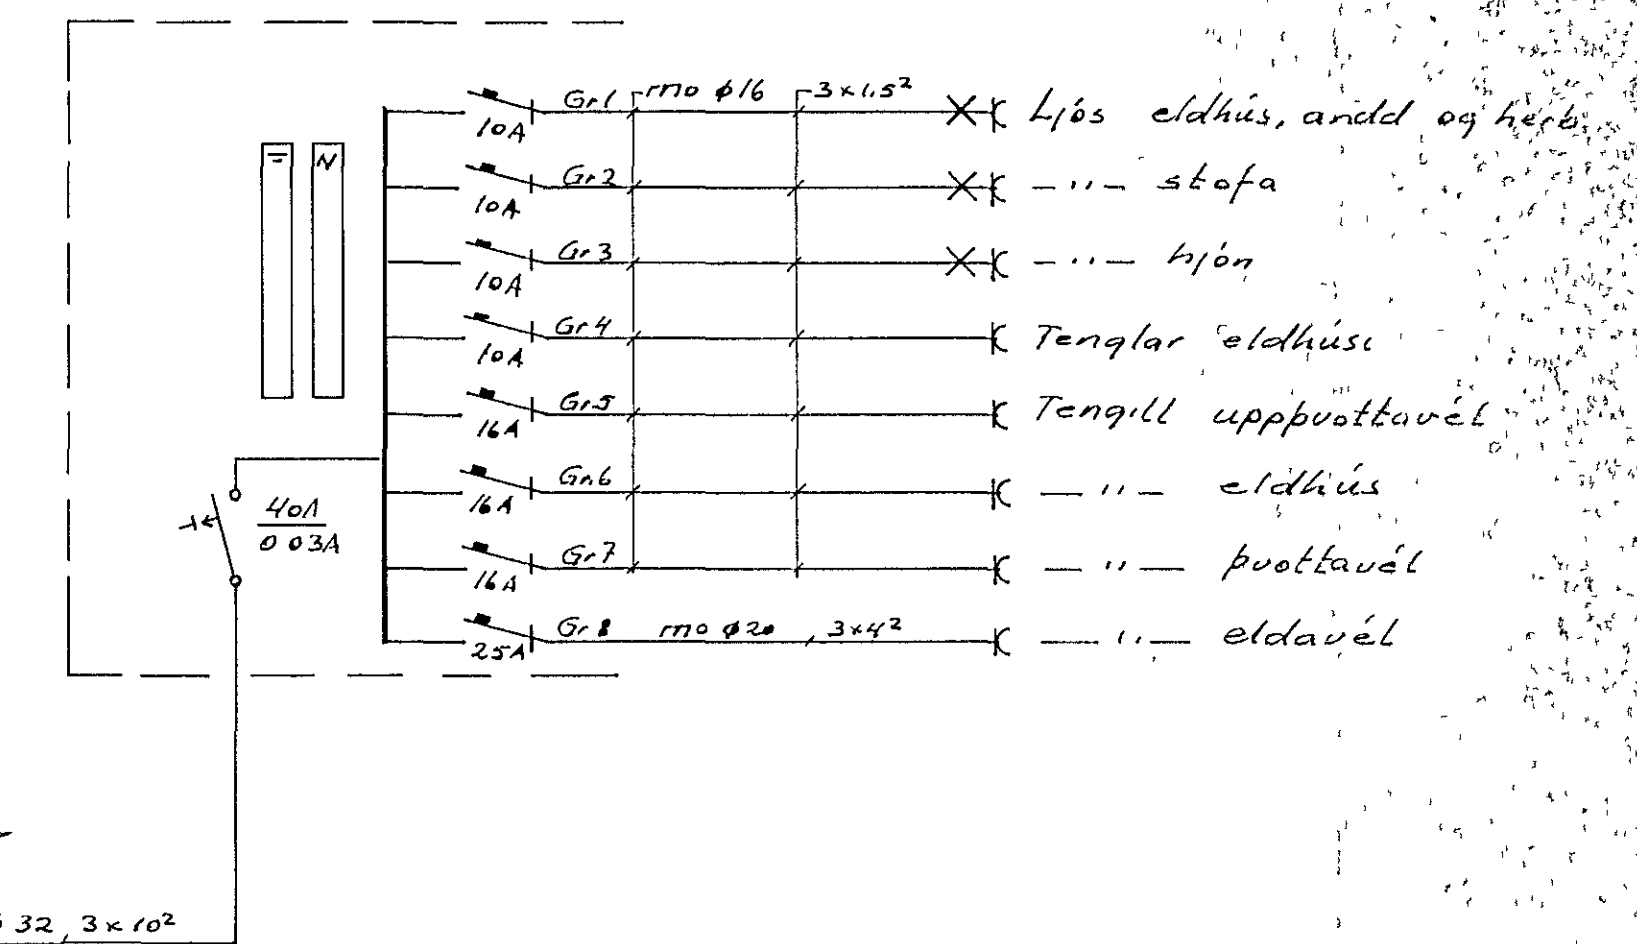 Gr1 mo ø16 3x1.5² Ljós eldhús, andd og herb.
10A
N
Gr2 —"— stofa
10A
Gr3 —"— hjón
10A
Gr4 Tenglar eldhúsi
10A
Gr5 Tengill uppþvottavél
16A
Gr6 —"— eldhús
16A
40A
0.03A
Gr7 —"— þvottavél
16A
Gr8 mo ø20, 3x4² —"— eldavél
25A
32, 3x10²